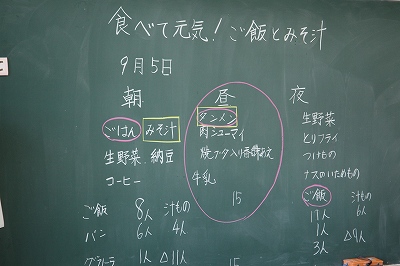 食べて元気！ご飯とみそ汁
9月5日
朝
ごはん みそ汁
生野菜 納豆
コーヒー
ご飯 8人 汁もの
パン 6人 4人
グラノーラ 1人 △11人
昼
タンメン
肉シューマイ
牛乳
15
15
夜
生野菜
とりフライ
つけもの
ナスのいためもの
ご飯 汁もの
17人 6人
1人
3人 △9人